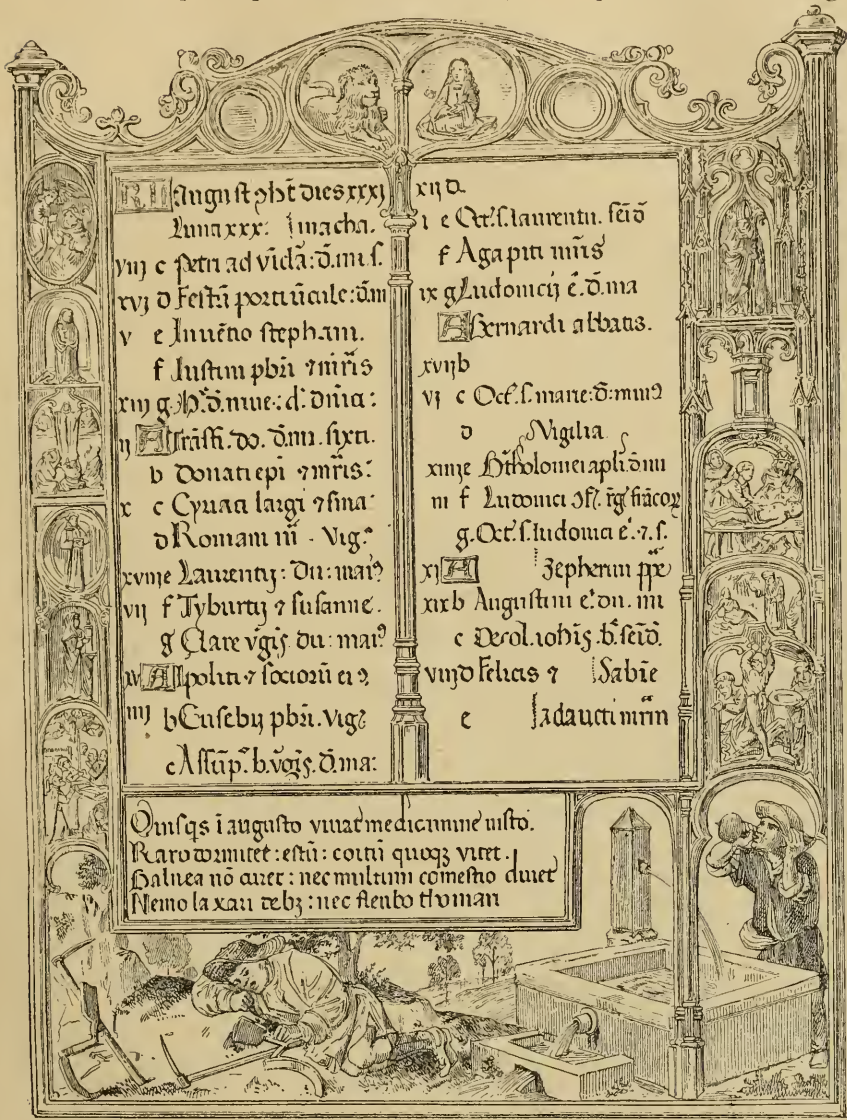 KL August9 ht dies xxxj
Luna xxx:
viij c Petri ad vīcła: d. mi s.
xvj d Festū portiūcule: d. m
v e Inuētio stephani.
f Iustini pbri ⁊ mr̄is
xiij g
ij A sixti.
b Donati epi ⁊ mr̄is:
x c Cyriaci largi ⁊
d Romani m̄ . Vigᵃ
xviij e Laurentij: du: mai9
vij f Tyburtij ⁊ susanne.
g Clare v̄gīs du: mai9
xv A Ipoliti ⁊ sociorū ei9
iiij b Eusebij pbri. Vigᵃ
c Assūp. b. v̄gīs. d. ma:
xij d.
i e Oct. s. laurentii. seīd
f Agapiti mr̄is
ix g Ludouicj ē. d. ma
A Bernardi abbatis.
xvij b
vj c Oct. s. marie: d: min9
d Vigilia
xiiij e Btholomei apli d mi
iij f Ludouici ꝯf. rḡ frācoꝝ
g. Oct. s. ludouici ē. ⁊. s.
xj A Zepherini ppe
xix b Augustini ē. du. mi
c Decol. iohīs. b. seīd.
viij d Felicis ⁊ Sabīe
e adaucti mr̄m
Quisqs ī augusto viuat medicamine iusto.
Raro dormitet: estū: coitū quoqꝫ vitet.
Balnea nō curet: nec multum comestio duret
Nemo laxari debꝫ: nec fleubothomari